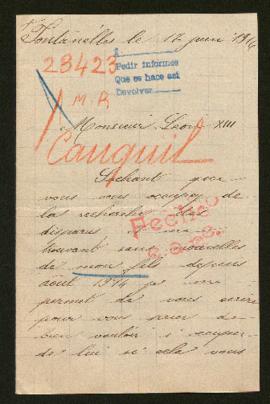 Fontanelles le 12 juin 1916
28423
Pedir informes
Que se hace así
Devolver
M. R
Monsieur Léon XIII
Cauquil
Sachant que
vous vous occupez de
la recherche des
disparus et me
trouvant sans nouvelles
de mon fils depuis
août 1914 je me
permet de vous écrire
pour vous prier de
bien vouloir s'occuper
de lui si cela vous